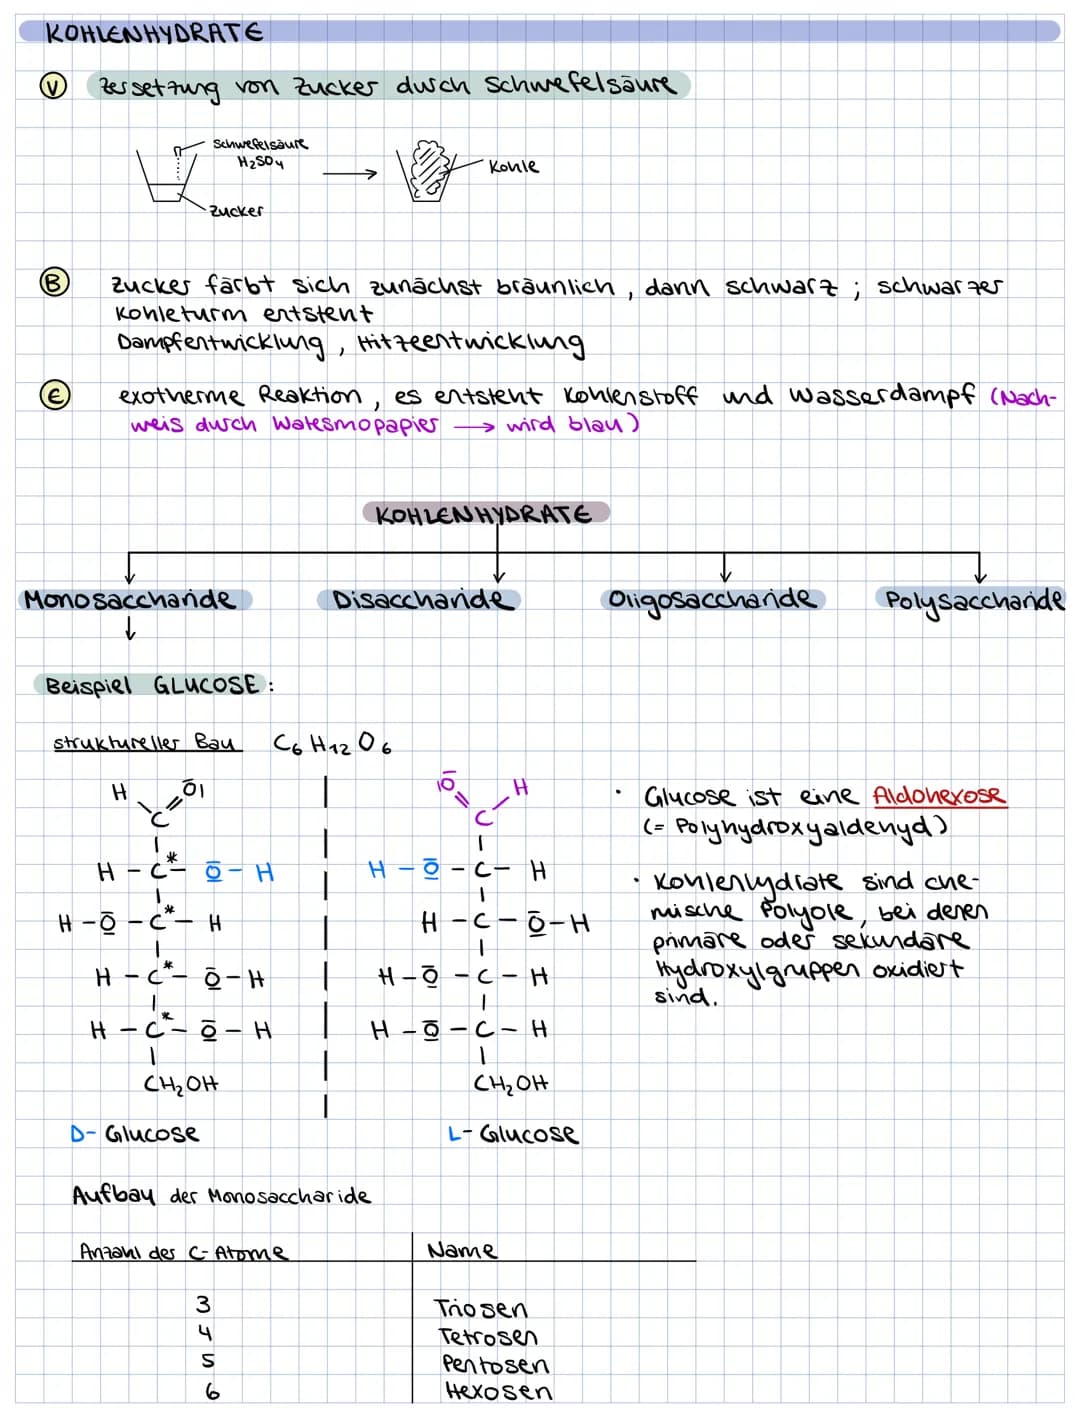 KOHLENHYDRATE
V Zersetzung von Zucker durch Schwefelsäure
Schwefelsäure
H₂SO₄
Kohle
Zucker
B Zucker färbt sich zunächst bräunlich, dann schwarz; schwarzer
Kohleturm entsteht
Dampfentwicklung, Hitzeentwicklung
E exotherme Reaktion, es entsteht Kohlenstoff und Wasserdampf (Nach-
weis durch Watesmopapier → wird blau)
KOHLENHYDRATE
Monosaccharide Disaccharide Oligosaccharide Polysaccharide
Beispiel GLUCOSE:
struktureller Bau C₆H₁₂O₆
H O̅| |O̅ H
C C
H - C* - O̅ - H H - O̅ - C - H
H - O̅ - C* - H H - C - O̅ - H
H - C* - O̅ - H H - O̅ - C - H
H - C* - O̅ - H H - O̅ - C - H
CH₂OH CH₂OH
D- Glucose L- Glucose
• Glucose ist eine Aldohexose
(= Polyhydroxyaldehyd)
• Kohlenhydrate sind che-
mische Polyole, bei denen
primäre oder sekundäre
Hydroxylgruppen oxidiert
sind.
Aufbau der Monosaccharide
Anzahl der C-Atome Name
3 Triosen
4 Tetrosen
5 Pentosen
6 Hexosen